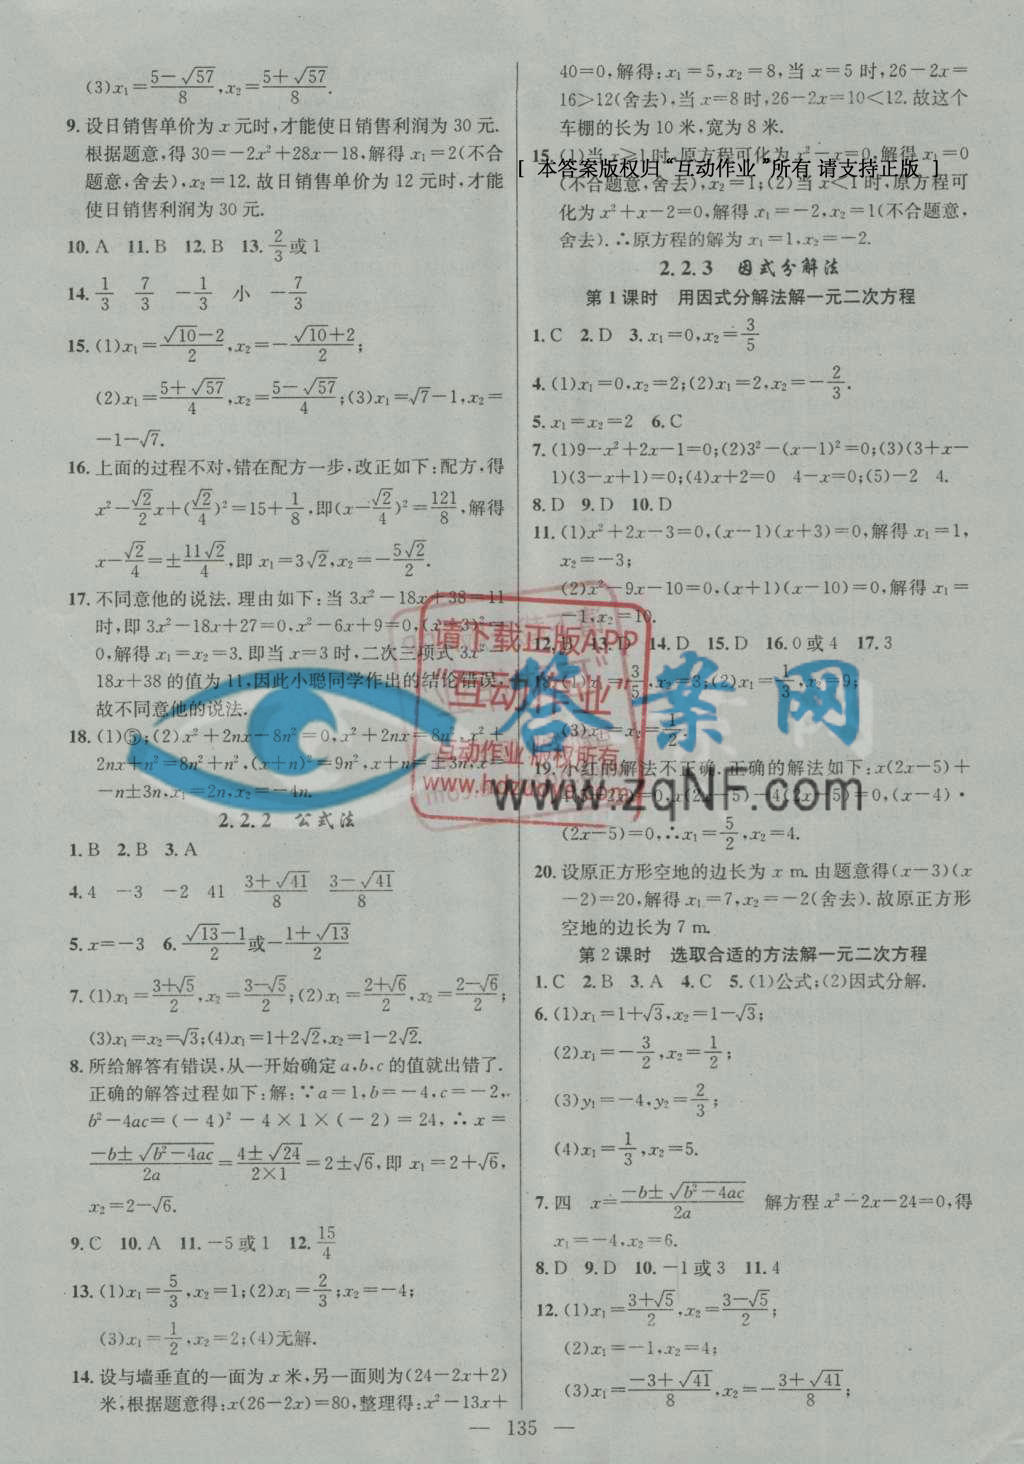 (3)x₁=(5-√57)/8,x₂=(5+√57)/8.
9. 设日销售单价为 x 元时,才能使日销售利润为 30 元.
根据题意,得 30=-2x²+28x-18,解得 x₁=2(不合
题意,舍去),x₂=12. 故日销售单价为 12 元时,才能
使日销售利润为 30 元.
10. A 11. B 12. B 13. 2/3或 1
14. 1/3 7/3 -1/3 小 -7/3
15. (1)x₁=(√10-2)/2,x₂=-(√10+2)/2;
(2)x₁=(5+√57)/4,x₂=(5-√57)/4;(3)x₁=√7-1,x₂=
-1-√7.
16. 上面的过程不对,错在配方一步,改正如下:配方,得
x²-√2/2x+(√2/4)²=15+1/8,即(x-√2/4)²=121/8,解得
x-√2/4=±11√2/4,即 x₁=3√2,x₂=-5√2/2.
17. 不同意他的说法. 理由如下:当 3x²-18x+38=11
时,即 3x²-18x+27=0,x²-6x+9=0,(x-3)²=
0,解得 x₁=x₂=3. 即当 x=3 时,二次三项式 3x²-
18x+38 的值为 11,因此小聪同学作出的结论错误,
故不同意他的说法.
18. (1)⑤;(2)x²+2nx-8n²=0,x²+2nx=8n²,x²+
2nx+n²=8n²+n²,(x+n)²=9n²,x+n=±3n,x=
-n±3n,x₁=2n,x₂=-4n.
2.2.2 公式法
1. B 2. B 3. A
4. 4 -3 -2 41 (3+√41)/8 (3-√41)/8
5. x=-3 6. (√13-1)/2或-(1+√13)/2
7. (1)x₁=(3+√5)/2,x₂=(3-√5)/2;(2)x₁=(2+√6)/2,x₂=(2-√6)/2;
(3)x₁=x₂=√3;(4)x₁=1+2√2,x₂=1-2√2.
8. 所给解答有错误,从一开始确定 a,b,c 的值就出错了.
正确的解答过程如下:解:∵a=1,b=-4,c=-2,
b²-4ac=(-4)²-4×1×(-2)=24,∴x=
(-b±√(b²-4ac))/2a=(4±√24)/(2×1)=2±√6,即 x₁=2+√6,
x₂=2-√6.
9. C 10. A 11. -5或 1 12. 15/4
13. (1)x₁=5/3,x₂=1;(2)x₁=2/3;x₂=-4;
(3)x₁=1/2,x₂=2;(4)无解.
14. 设与墙垂直的一面为 x 米,另一面则为(24-2x+2)
米,根据题意得:x(26-2x)=80,整理得:x²-13x+
40=0,解得:x₁=5,x₂=8,当 x=5 时,26-2x=
16>12(舍去),当 x=8时,26-2x=10<12. 故这个
车棚的长为 10 米,宽为 8 米.
15. (1)当 x≥1 时,原方程可化为 x²-x=0,解得 x₁=0
[ 本答案版权归“互动作业”所有 请支持正版 ]
(不合题意,舍去),x₂=1;(2)当 x<1 时,原方程可
化为 x²+x-2=0,解得 x₁=-2,x₂=1(不合题意,
舍去).∴原方程的解为 x₁=1,x₂=-2.
2.2.3 因式分解法
第 1 课时 用因式分解法解一元二次方程
1. C 2. D 3. x₁=0,x₂=3/5
4. (1)x₁=0,x₂=2;(2)x₁=2,x₂=-2/3.
5. x₁=x₂=2 6. C
7. (1)9-x²+2x-1=0;(2)3²-(x-1)²=0;(3)(3+x-
1)(3-x+1)=0;(4)x+2=0 4-x=0;(5)-2 4.
8. D 9. D 10. D
11. (1)x²+2x-3=0,(x-1)(x+3)=0,解得 x₁=1,
x₂=-3;
(2)x²-9x-10=0,(x+1)(x-10)=0,解得 x₁=
-1,x₂=10.
12. B 13. D 14. D 15. D 16. 0或 4 17. 3
18. (1)x₁=3/5,x₂=3;(2)x₁=1/3,x₂=9;
(3)x₁=x₂=1/2.
19. 小红的解法不正确. 正确的解法如下:x(2x-5)+
4(5-2x)=0,x(2x-5)-4(2x-5)=0,(x-4)·
(2x-5)=0,∴x₁=5/2,x₂=4.
20. 设原正方形空地的边长为 x m. 由题意得(x-3)(x
-2)=20,解得 x₁=7,x₂=-2(舍去). 故原正方形
空地的边长为 7 m.
第 2 课时 选取合适的方法解一元二次方程
1. C 2. B 3. A 4. C 5. (1)公式;(2)因式分解.
6. (1)x₁=1+√3,x₂=1-√3;
(2)x₁=-3/2,x₂=1/2;
(3)y₁=-4,y₂=2/3;
(4)x₁=1/3,x₂=5.
7. 四 x=(-b±√(b²-4ac))/2a 解方程 x²-2x-24=0,得
x₁=-4,x₂=6.
8. D 9. D 10. -1或 3 11. 4
12. (1)x₁=(3+√5)/2,x₂=(3-√5)/2;
(2)x₁=-1,x₂=4;
(3)x₁=(-3+√41)/8,x₂=-(3+√41)/8;
— 135 —
请下载正版APP
“互动作业”
互动作业 版权所有
www.hdzuoye.com
答案网
www.zqNF.com